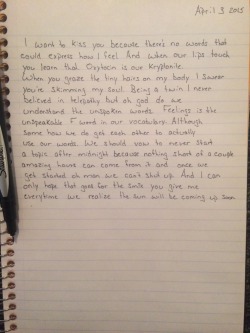 April 3 2015
I want to kiss you because there's no words that
could express how I feel. And when our lips touch
you learn that Oxytocin is our Kryptonite.
When you graze the tiny hairs on my body I swear
you're skimming my soul. Being a twin I never
believed in telepathy but oh god do we
understand the unspoken words. Feelings is the
unspeakable F word in our vocabulary. Although
some how we do get each other to actually
use our words. We should vow to never start
a topic after midnight because nothing short of a couple
amazing hours can come from it and once we
get started oh man we can't shut up. And I can
only hope that goes for the smile you give me
everytime we realize the sun will be coming up soon